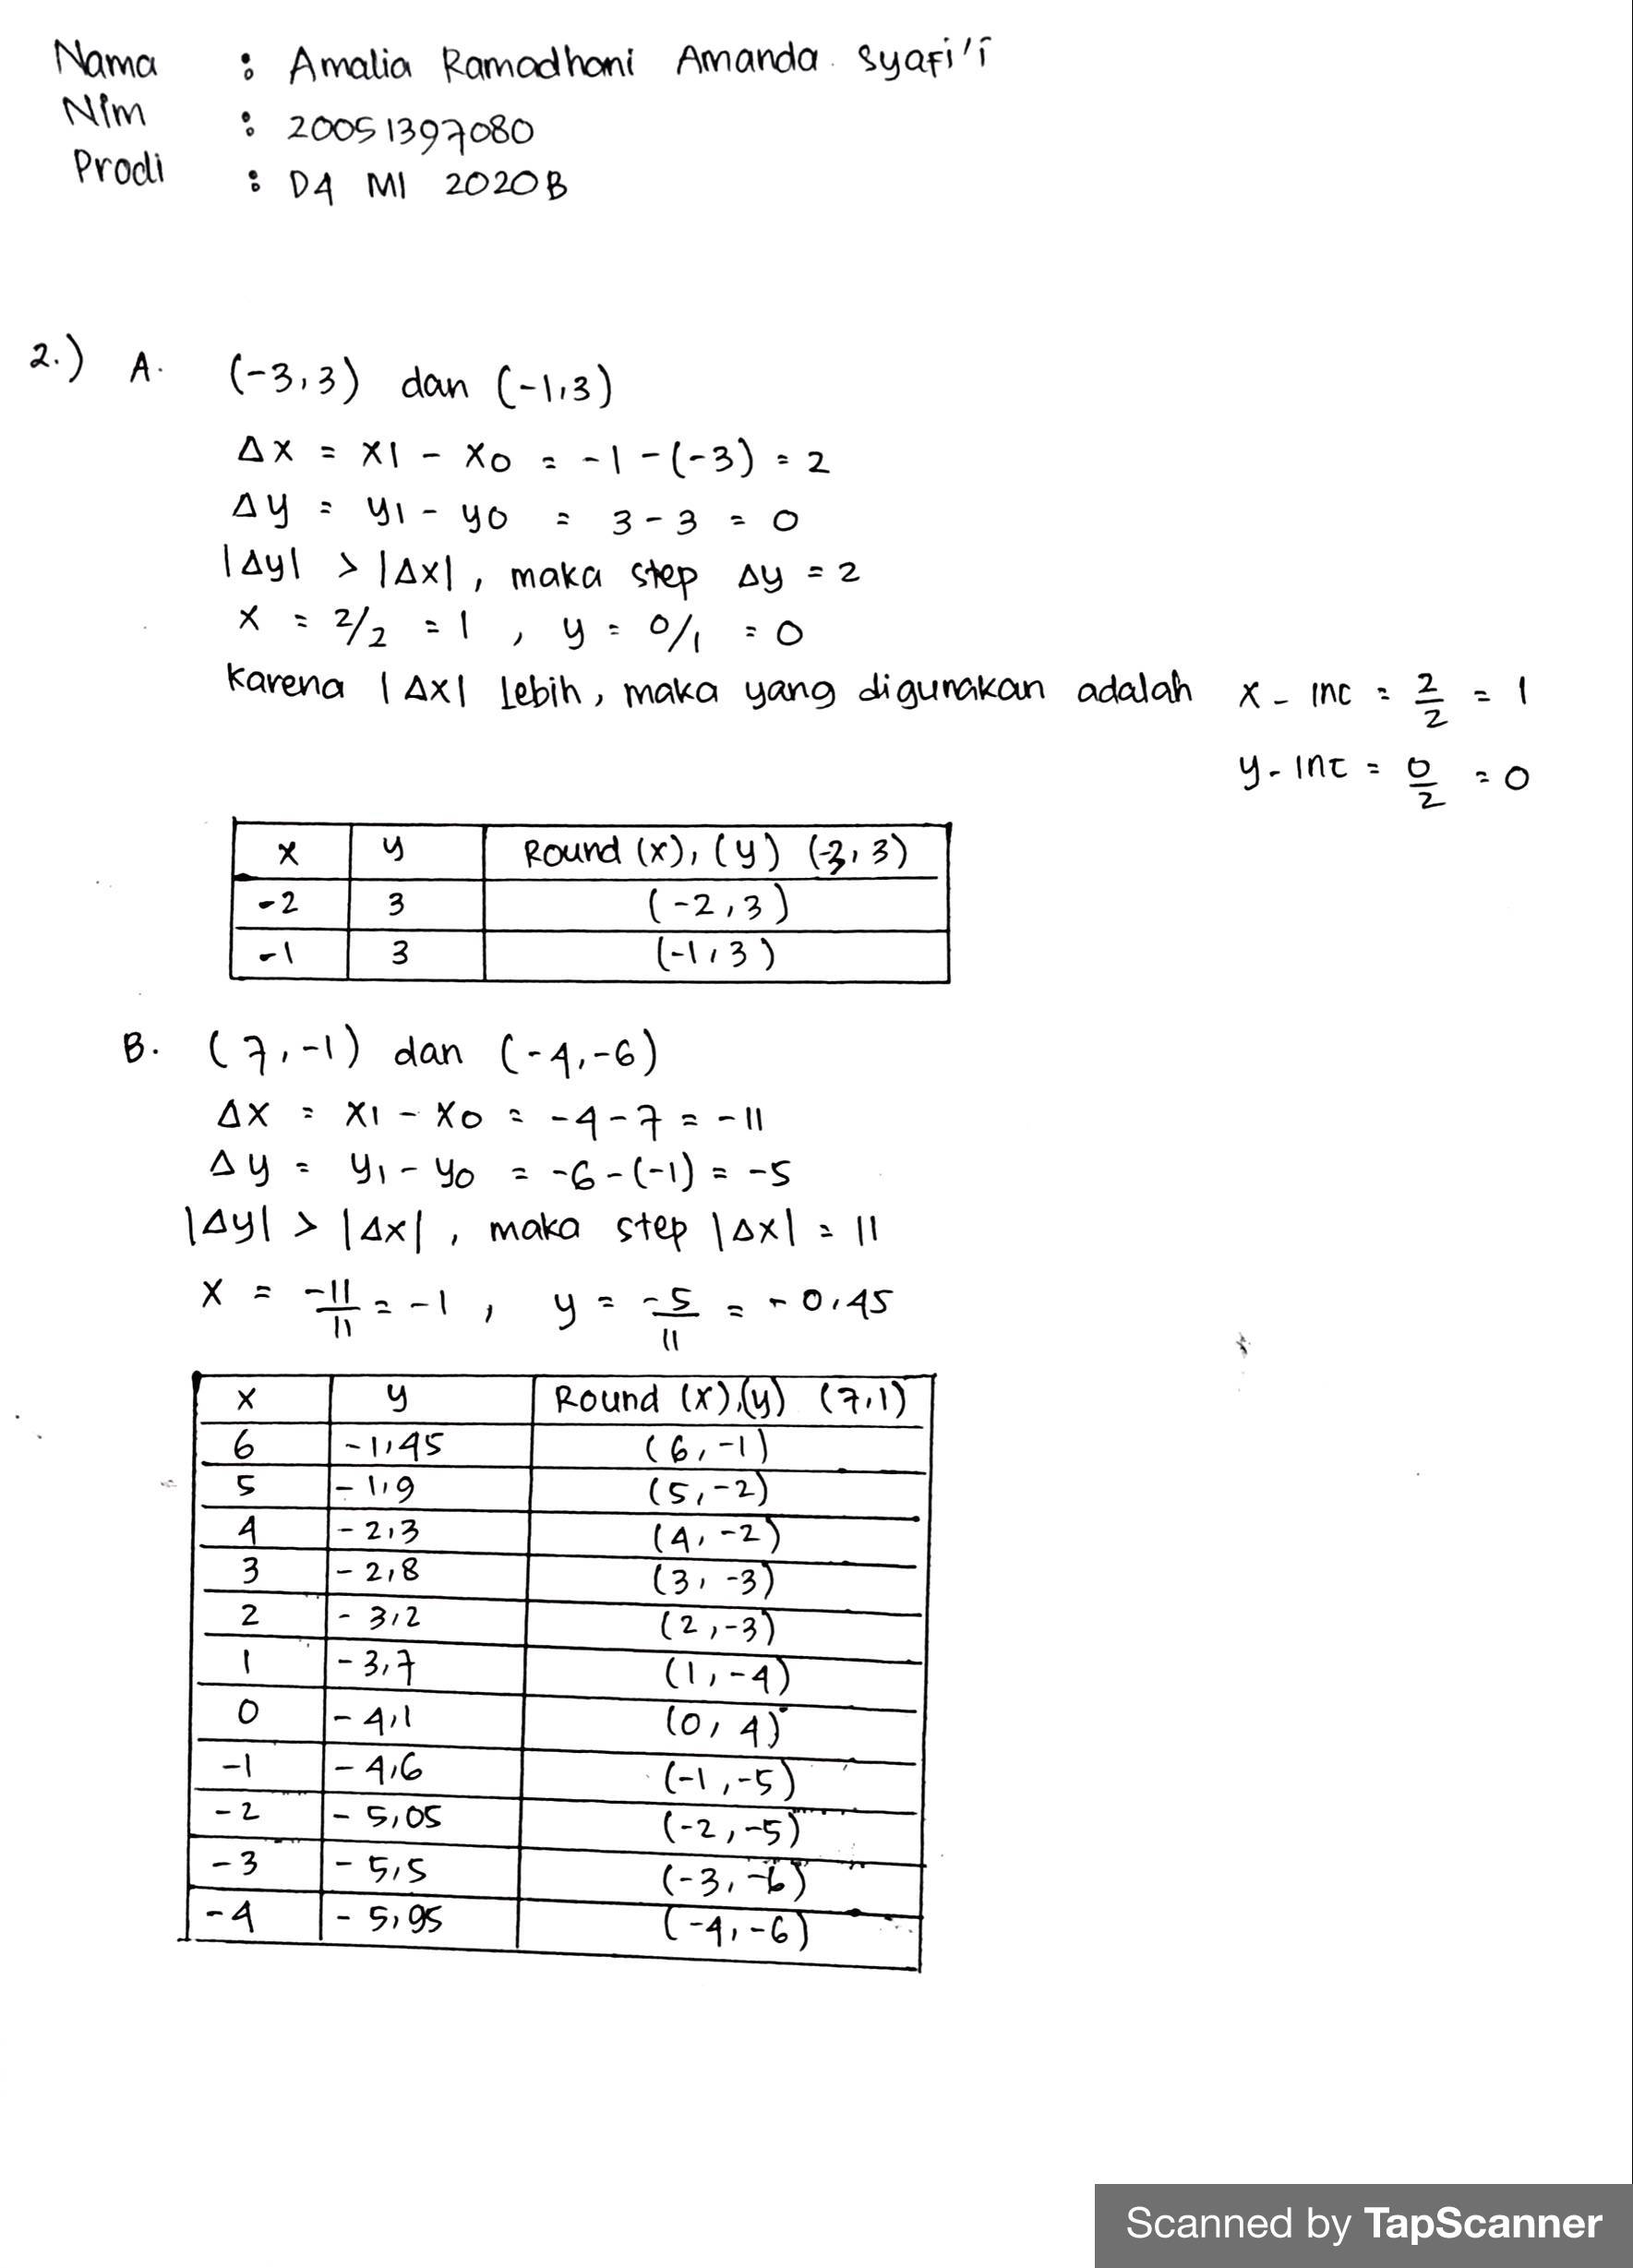 Nama : Amalia Ramadhani Amanda Syafi'i
Nim : 20051397080
Prodi : D4 MI 2020B
2.) A. (-3,3) dan (-1,3)
Δx = x1 - x0 = -1 - (-3) = 2
Δy = y1 - y0 = 3 - 3 = 0
|Δy| > |Δx|, maka step Δy = 2
x = 2/2 = 1 , y = 0/1 = 0
Karena |Δx| lebih, maka yang digunakan adalah x - inc = 2/2 = 1
y - inc = 0/2 = 0
x y Round (x), (y) (-3,3)
-2 3 (-2,3)
-1 3 (-1,3)
B. (7,-1) dan (-4,-6)
Δx = x1 - x0 = -4 - 7 = -11
Δy = y1 - y0 = -6 - (-1) = -5
|Δy| > |Δx| , maka step |Δx| = 11
x = -11/11 = -1 , y = -5/11 = -0,45
x y Round (x),(y) (7,1)
6 -1,45 (6,-1)
5 -1,9 (5,-2)
4 -2,3 (4,-2)
3 -2,8 (3,-3)
2 -3,2 (2,-3)
1 -3,7 (1,-4)
0 -4,1 (0,4)
-1 -4,6 (-1,-5)
-2 -5,05 (-2,-5)
-3 -5,5 (-3,-6)
-4 -5,95 (-4,-6)
Scanned by TapScanner